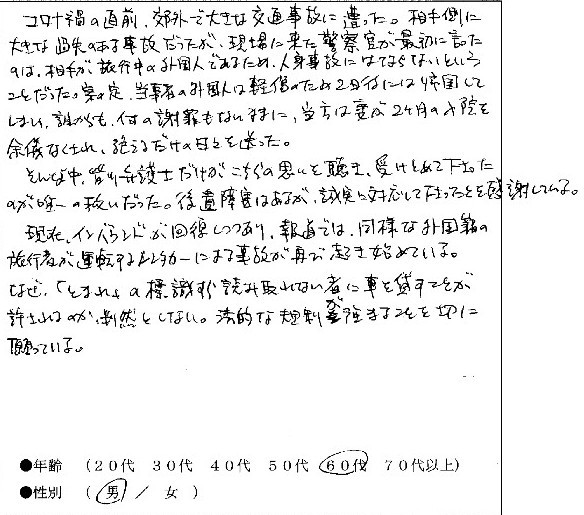 コロナ禍の直前、郊外で大きな交通事故に遭った。相手側に
大きな過失のある事故だったが、現場に来た警察官が最初に言った
のは、相手が旅行中の外国人であるため、人身事故にはならないという
ことだった。案の定、当事者の外国人は軽傷のため2日後には帰国して
しまい、誰からも、何の謝罪もないままに、当方は妻が2ヶ月の入院を
余儀なくされ、絶えるだけの日々を送った。
そんな中、弁護士だけがこちらの思いを聴き、受けとめて下さった
のが唯一の救いだった。後遺障害はあるが、誠実に対応して下さったことを感謝している。
現在、インバウンドが回復しつつあり、報道では、同様な外国籍の
旅行者が運転するレンタカーによる事故が再び起き始めている。
なぜ、「とまれ」の標識すら読み取れない者に車を貸すことが
許されるのか、判然としない。法的な規制が強まることを切に
願っている。
●年齢 (20代 30代 40代 50代 60代 70代以上)
●性別 (男 / 女)